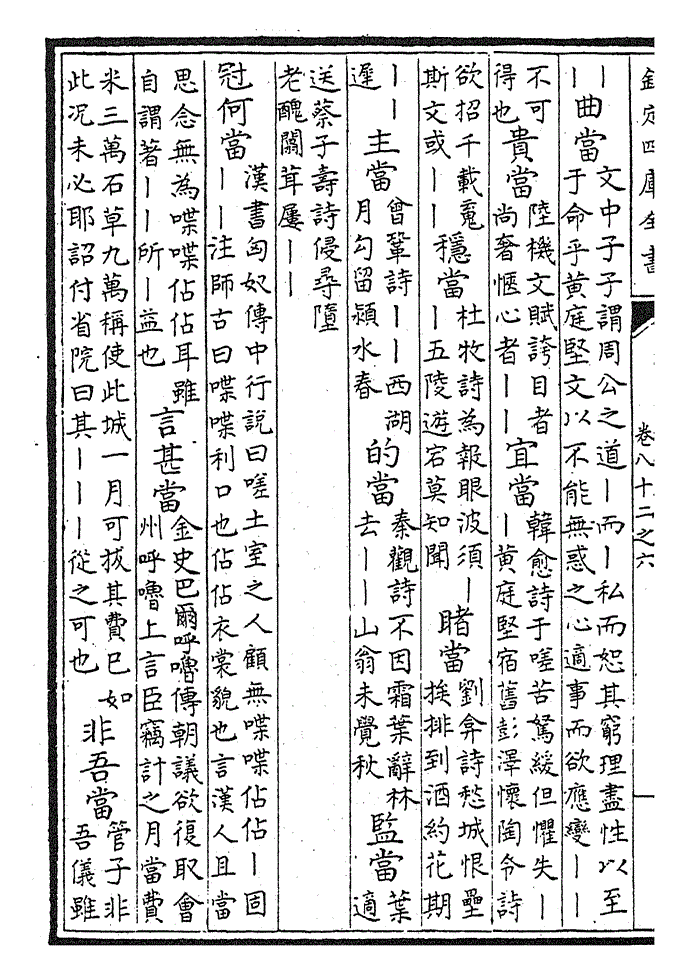 欽定四庫全書 卷八十二之六 一
丨曲當 文中子子謂周公之道丨而丨私而恕其窮理盡性以至
于命乎黃庭堅文以不能無惑之心適事而欲應變丨丨
不可
得也 貴當 陸機文賦誇目者
尚奢愜心者丨丨 宜當 韓愈詩于嗟苦駑緩但懼失丨
丨黃庭堅宿舊彭澤懷陶令詩
欲招千載䰟
斯文或丨丨 穩當 杜牧詩為報眼波須丨
丨五陵遊宕莫知聞 睹當 劉弇詩愁城恨壘
挨排到酒約花期
丨丨
遲 主當 曾鞏詩丨丨西湖
月勾留潁水春 的當 秦觀詩不因霜葉辭林
去丨丨山翁未覺秋 監當 葉
適
送蔡子壽詩侵尋墮
老醜闒茸屢丨丨
冠何當 漢書匈奴傳中行說曰嗟土室之人顧無喋喋佔佔丨固
丨丨注師古曰喋喋利口也佔佔衣裳貌也言漢人且當
思念無為喋喋佔佔耳雖
自謂著丨丨所丨益也 言甚當 金史巴爾呼嚕傳朝議欲復取會
州呼嚕上言臣竊計之月當費
米三萬石草九萬稱使此城一月可拔其費已如
此况未必耶詔付省院曰其丨丨丨從之可也 非吾當 管子非
吾儀雖